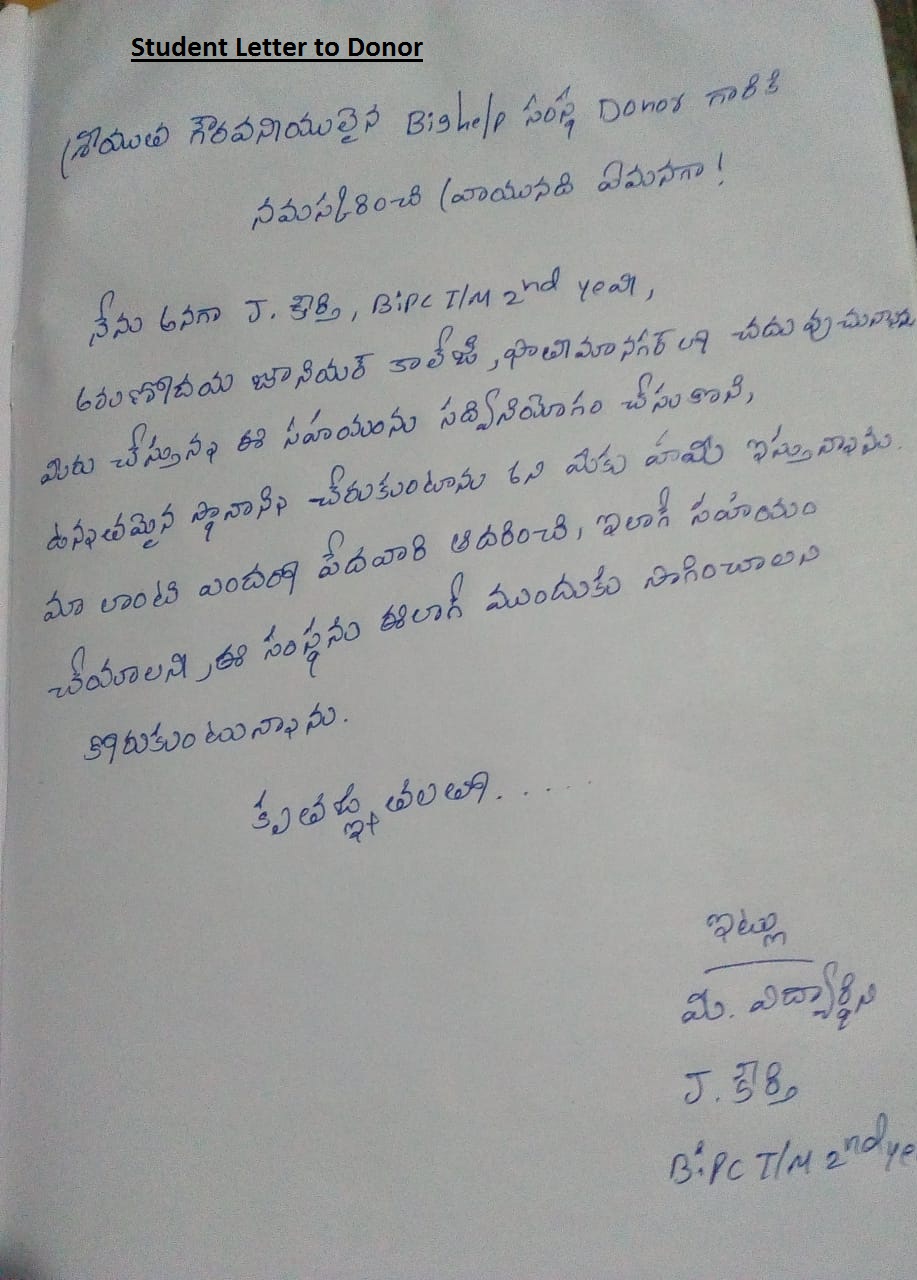 Student Letter to Donor
శ్రీయుత గౌరవనీయులైన Bighelp సంస్థ Donor గారికి
నమస్కరించి వ్రాయునది ఏమనగా!
నేను అనగా J. కీర్తి, BiPC T/M 2nd year,
అరుణోదయ జూనియర్ కాలేజీ, ఫాతిమానగర్ లో చదువుచున్నాను
మీరు చేస్తున్న ఈ సహాయంను సద్వినియోగం చేసుకొని,
ఉన్నతమైన స్థానాన్ని చేరుకుంటాను అని మీకు హామీ ఇస్తున్నాను.
మా లాంటి ఎందరో పేదవారి ఆదరించి, ఇలాగే సహాయం
చేయాలని, ఈ సంస్థను ఈలాగే ముందుకు సాగించాలని
కోరుకుంటున్నాను.
కృతజ్ఞతలతో......
ఇట్లు
మీ. విద్యార్థిని
J. కీర్తి
BiPC T/M 2nd ye